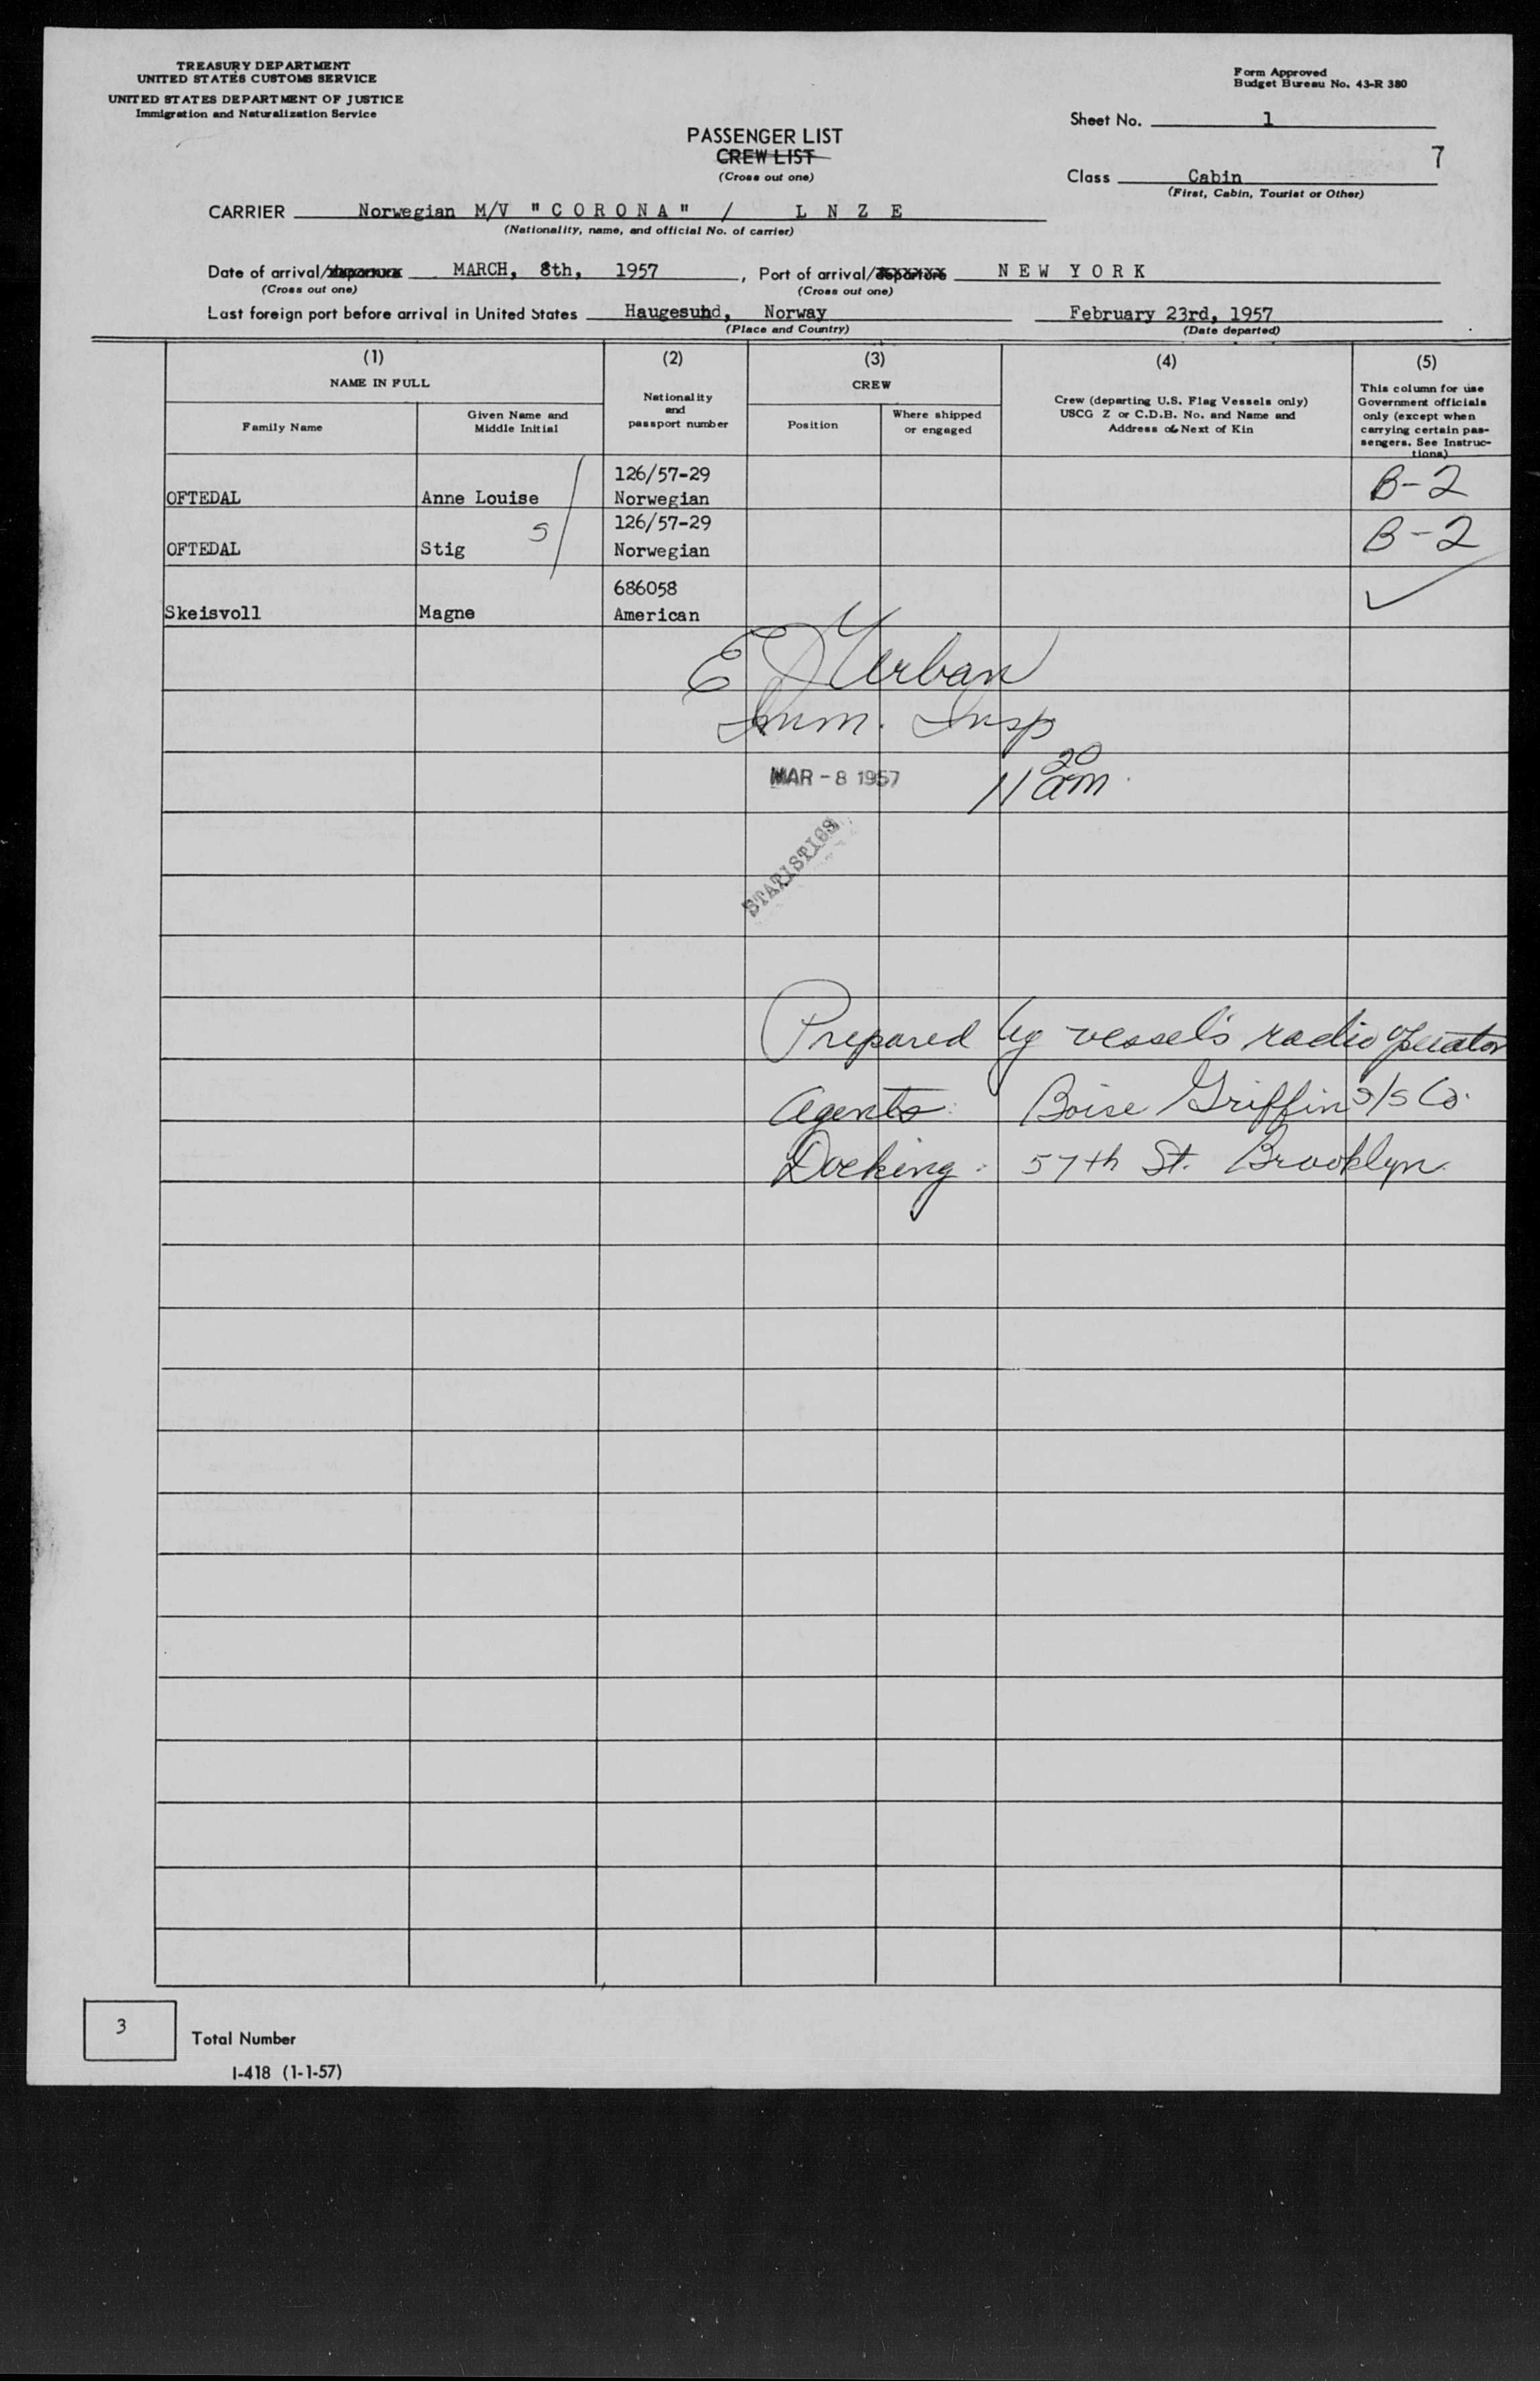 TREASURY DEPARTMENT
UNITED STATES CUSTOMS SERVICE
UNITED STATES DEPARTMENT OF JUSTICE
Immigration and Naturalization Service
Form Approved
Budget Bureau No. 43-R 380
Sheet No. 1
7
PASSENGER LIST
CREW LIST
(Cross out one)
Class Cabin
(First, Cabin, Tourist or Other)
CARRIER Norwegian M/V "CORONA" / LNZE
(Nationality, name, and official No. of carrier)
Date of arrival/departure MARCH, 8th, 1957, Port of arrival/departure NEW YORK
(Cross out one) (Cross out one)
Last foreign port before arrival in United States Haugesund, Norway February 23rd, 1957
(Place and Country) (Date departed)
(1) (2) (3) (4) (5)
NAME IN FULL
Family Name
Given Name and
Middle Initial
Nationality
and
passport number
CREW
Position
Where shipped
or engaged
Crew (departing U.S. Flag Vessels only)
USCG Z or C.D.B. No. and Name and
Address of Next of Kin
This column for use
Government officials
only (except when
carrying certain pas-
sengers. See Instruc-
tions)
126/57-29
OFTEDAL Anne Louise Norwegian B-2
126/57-29
OFTEDAL Stig 5 Norwegian B-2
686058
Skeisvoll Magne American
E J Urban
Imm. Insp
MAR - 8 1957 11 20 am
STATISTICS
Prepared by vessel's radio operator
Agents: Boise Griffin S/S Co.
Docking: 57th St. Brooklyn
3
Total Number
I-418 (1-1-57)